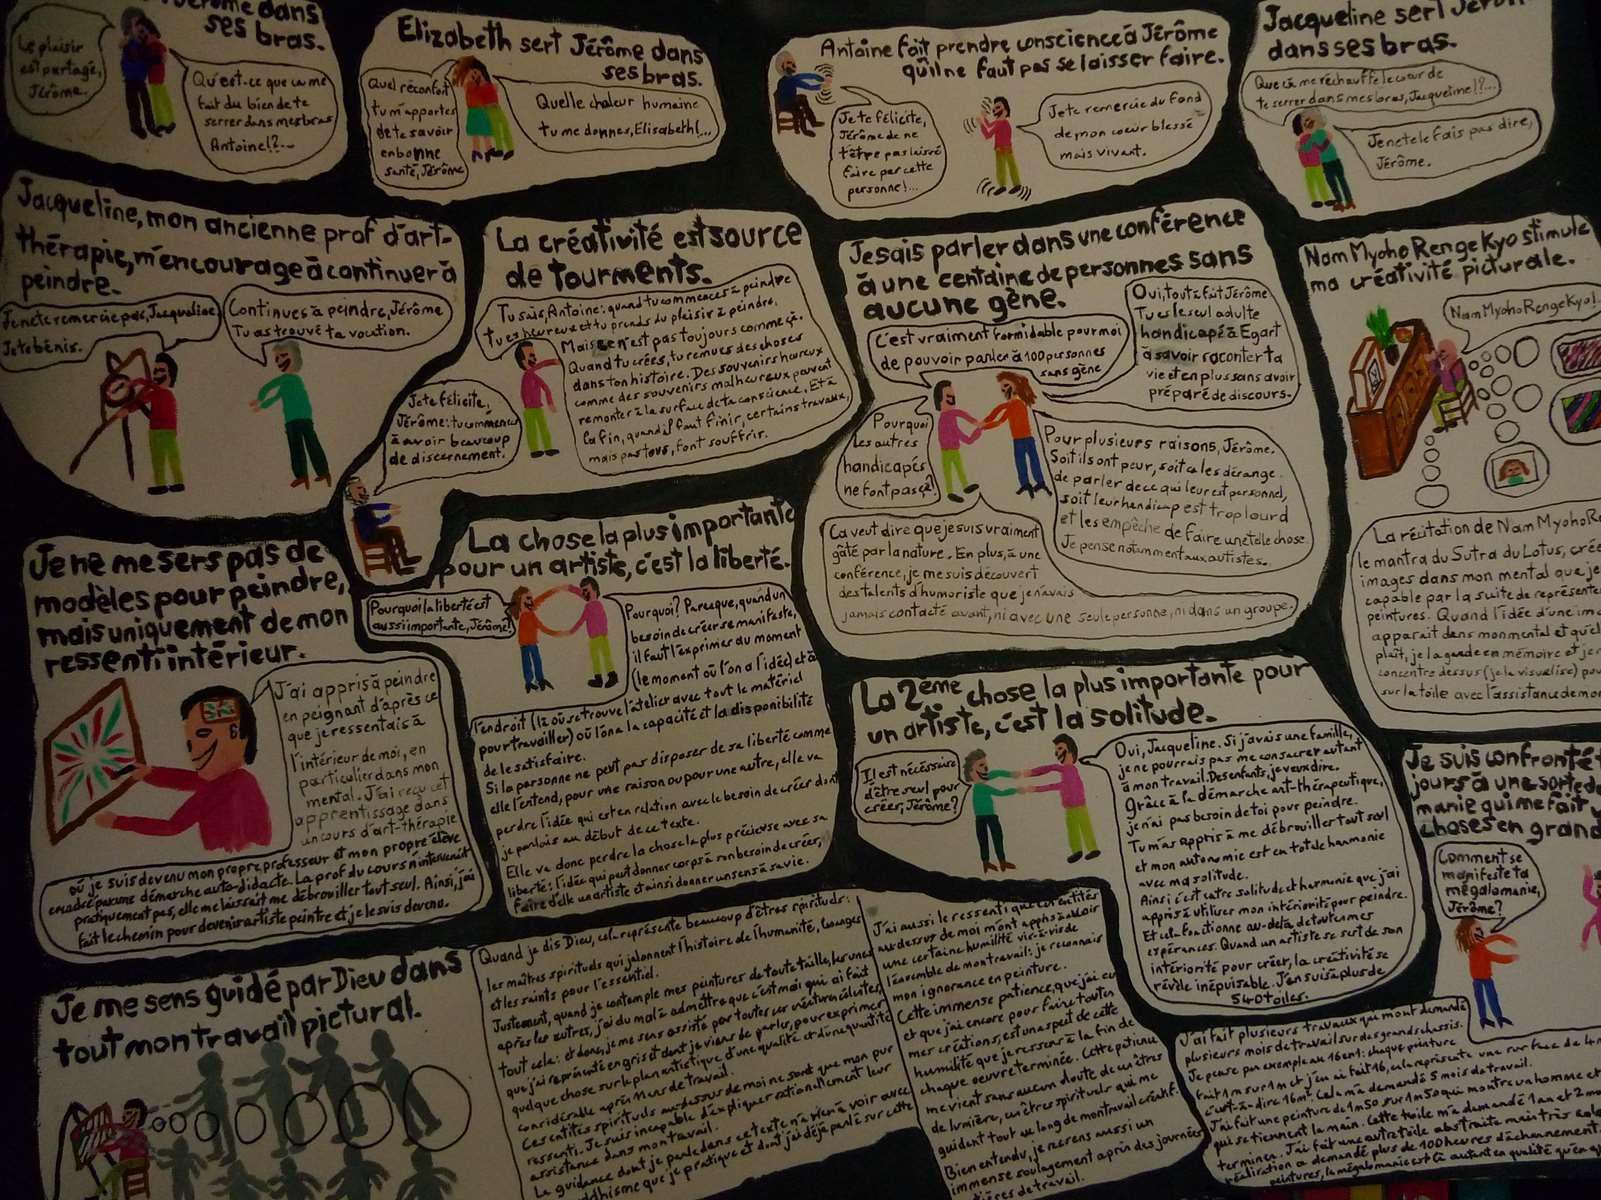 Jérôme dans
ses bras.
Le plaisir
est partagé,
Jérôme.
Qu'est-ce que ça me
fait du bien de te
serrer dans mes bras
Antoine!?...
Elizabeth sert Jérôme dans
ses bras.
Quel réconfort
tu m'apportes
de te savoir
en bonne
santé, Jérôme
Quelle chaleur humaine
tu me donnes, Elisabeth!...
Antoine fait prendre conscience à Jérôme
qu'il ne faut pas se laisser faire.
Je te félicite,
Jérôme de ne
t'être pas laissé
faire par cette
personne!...
Je te remercie du fond
de mon coeur blessé
mais vivant.
Jacqueline sert Jérôme
dans ses bras.
Que ça me réchauffe le coeur de
te serrer dans mes bras, Jacqueline!?...
Je ne te le fais pas dire,
Jérôme.
Jacqueline, mon ancienne prof d'art-
thérapie, m'encourage à continuer à
peindre.
Je ne te remercie pas, Jacqueline
Je te bénis.
Continues à peindre, Jérôme
Tu as trouvé ta vocation.
La créativité est source
de tourments.
Tu sais, Antoine: quand tu commences à peindre
tu es heureux et tu prends du plaisir à peindre.
Mais ce n'est pas toujours comme ça.
Quand tu crées, tu remues des choses
dans ton histoire. Des souvenirs heureux
comme des souvenirs malheureux peuvent
remonter à la surface de ta conscience. Et à
la fin, quand il faut finir, certains travaux,
mais pas tous, font souffrir.
Je te félicite,
Jérôme: tu commences
à avoir beaucoup
de discernement.
Je sais parler dans une conférence
à une centaine de personnes sans
aucune gêne.
C'est vraiment formidable pour moi
de pouvoir parler à 100 personnes
sans gêne
Oui, tout à fait Jérôme
Tu es le seul adulte
handicapé à Egart
à savoir raconter ta
vie et en plus sans avoir
préparé de discours.
Pourquoi
les autres
handicapés
ne font pas ça?
Pour plusieurs raisons, Jérôme.
Soit ils ont peur, soit ça les dérange
de parler de ce qui leur est personnel,
soit leur handicap est trop lourd
et les empêche de faire une telle chose
Je pense notamment aux autistes.
Ça veut dire que je suis vraiment
gâté par la nature. En plus, à une
conférence, je me suis découvert
des talents d'humoriste que je n'avais
jamais contacté avant, ni avec une seule personne, ni dans un groupe.
Nam Myoho Renge Kyo stimule
ma créativité picturale.
Nam Myoho Renge Kyo!
La récitation de Nam Myoho Re
le mantra du Sutra du Lotus, crée
images dans mon mental que je
capable par la suite de représenter
peintures. Quand l'idée d'une im
apparaît dans mon mental et qu'el
plaît, je la garde en mémoire et je
concentre dessus (je la visualise) pou
sur la toile avec l'assistance de mon
Je ne me sers pas de
modèles pour peindre,
mais uniquement de mon
ressenti intérieur.
J'ai appris à peindre
en peignant d'après ce
que je ressentais à
l'intérieur de moi, en
particulier dans mon
mental. J'ai reçu cet
apprentissage dans
un cours d'art-thérapie
où je suis devenu mon propre professeur et mon propre élève
encadré par une démarche auto-didacte. La prof du cours n'intervenait
pratiquement pas, elle me laissait me débrouiller tout seul. Ainsi, j'ai
fait le chemin pour devenir artiste peintre et je le suis devenu.
La chose la plus importante
pour un artiste, c'est la liberté.
Pourquoi la liberté est
aussi importante, Jérôme?
Pourquoi? Parce que, quand un
besoin de créer se manifeste,
il faut l'exprimer au moment
(le moment où l'on a l'idée) et à
l'endroit (là où se trouve l'atelier avec tout le matériel
pour travailler) où l'on a la capacité et la disponibilité
de le satisfaire.
Si la personne ne peut pas disposer de sa liberté comme
elle l'entend, pour une raison ou pour une autre, elle va
perdre l'idée qui est en relation avec le besoin de créer dont
je parlais au début de ce texte.
Elle va donc perdre la chose la plus précieuse avec sa
liberté: l'idée qui peut donner corps à son besoin de créer,
faire d'elle un artiste et ainsi donner un sens à sa vie.
La 2ème chose la plus importante pour
un artiste, c'est la solitude.
Il est nécessaire
d'être seul pour
créer, Jérôme?
Oui, Jacqueline. Si j'avais une famille,
je ne pourrais pas me consacrer autant
à mon travail. Des enfants, je veux dire.
Grâce à la démarche art-thérapeutique,
je n'ai pas besoin de toi pour peindre.
Tu m'as appris à me débrouiller tout seul
et mon autonomie est en totale harmonie
avec ma solitude.
Ainsi c'est entre solitude et harmonie que j'ai
appris à utiliser mon intériorité pour peindre.
Et cela fonctionne au-delà de toutes mes
espérances. Quand un artiste se sert de son
intériorité pour créer, la créativité se
révèle inépuisable. J'en suis à plus de
540 toiles.
Je suis confronté
jours à une sorte de
manie qui me fait
choses en grand
Comment se
manifeste ta
mégalomanie,
Jérôme?
J'ai fait plusieurs travaux qui m'ont demandé
plusieurs mois de travail sur des grands chassis.
Je pense par exemple au 16 en 1: chaque peinture
fait 1m sur 1m et j'en ai fait 16, cela représente une surface de 4m
c'est-à-dire 16m². Cela m'a demandé 5 mois de travail.
J'ai fait une peinture de 1m50 sur 1m50 qui montre un homme et
qui se tiennent la main. Cette toile m'a demandé 1 an et 2 mo
terminer. J'ai fait une autre toile abstraite mais très colo
réalisation a demandé plus de 100 heures d'acharnement
peintures, la mégalomanie est là autant en qualité qu'en qu
Je me sens guidé par Dieu dans
tout mon travail pictural.
Quand je dis Dieu, cela représente beaucoup d'êtres spirituels:
les maîtres spirituels qui jalonnent l'histoire de l'humanité, les anges
et les saints pour l'essentiel.
Justement, quand je contemple mes peintures de toute taille, les unes
après les autres, j'ai du mal à admettre que c'est moi qui ai fait
tout cela: et donc, je me sens assisté par toutes ces créatures célestes,
que j'ai représenté en gris et dont je viens de parler, pour exprimer
quelque chose sur le plan artistique d'une qualité et d'une quantité
considérable après 14 ans de travail.
Ces entités spirituels au-dessus de moi ne sont que mon pur
ressenti. Je suis incapable d'expliquer rationnellement leur
assistance dans mon travail.
La guidance dont je parle dans ce texte n'a rien à voir avec
bouddhisme que je pratique et dont j'ai déjà parlé sur cette
J'ai aussi le ressenti que ces entités
au-dessus de moi m'ont appris à avoir
une certaine humilité vis-à-vis de
l'ensemble de mon travail: je reconnais
mon ignorance en peinture.
Cette immense patience, que j'ai eu
et que j'ai encore pour faire toutes
mes créations, est un aspect de cette
humilité que je ressens à la fin de
chaque oeuvre terminée. Cette patience
me vient sans aucun doute de ces êtres
de lumière, ces êtres spirituels qui me
guident tout au long de mon travail créatif.
Bien entendu, je ressens aussi un
immense soulagement après des journées
entières de travail.